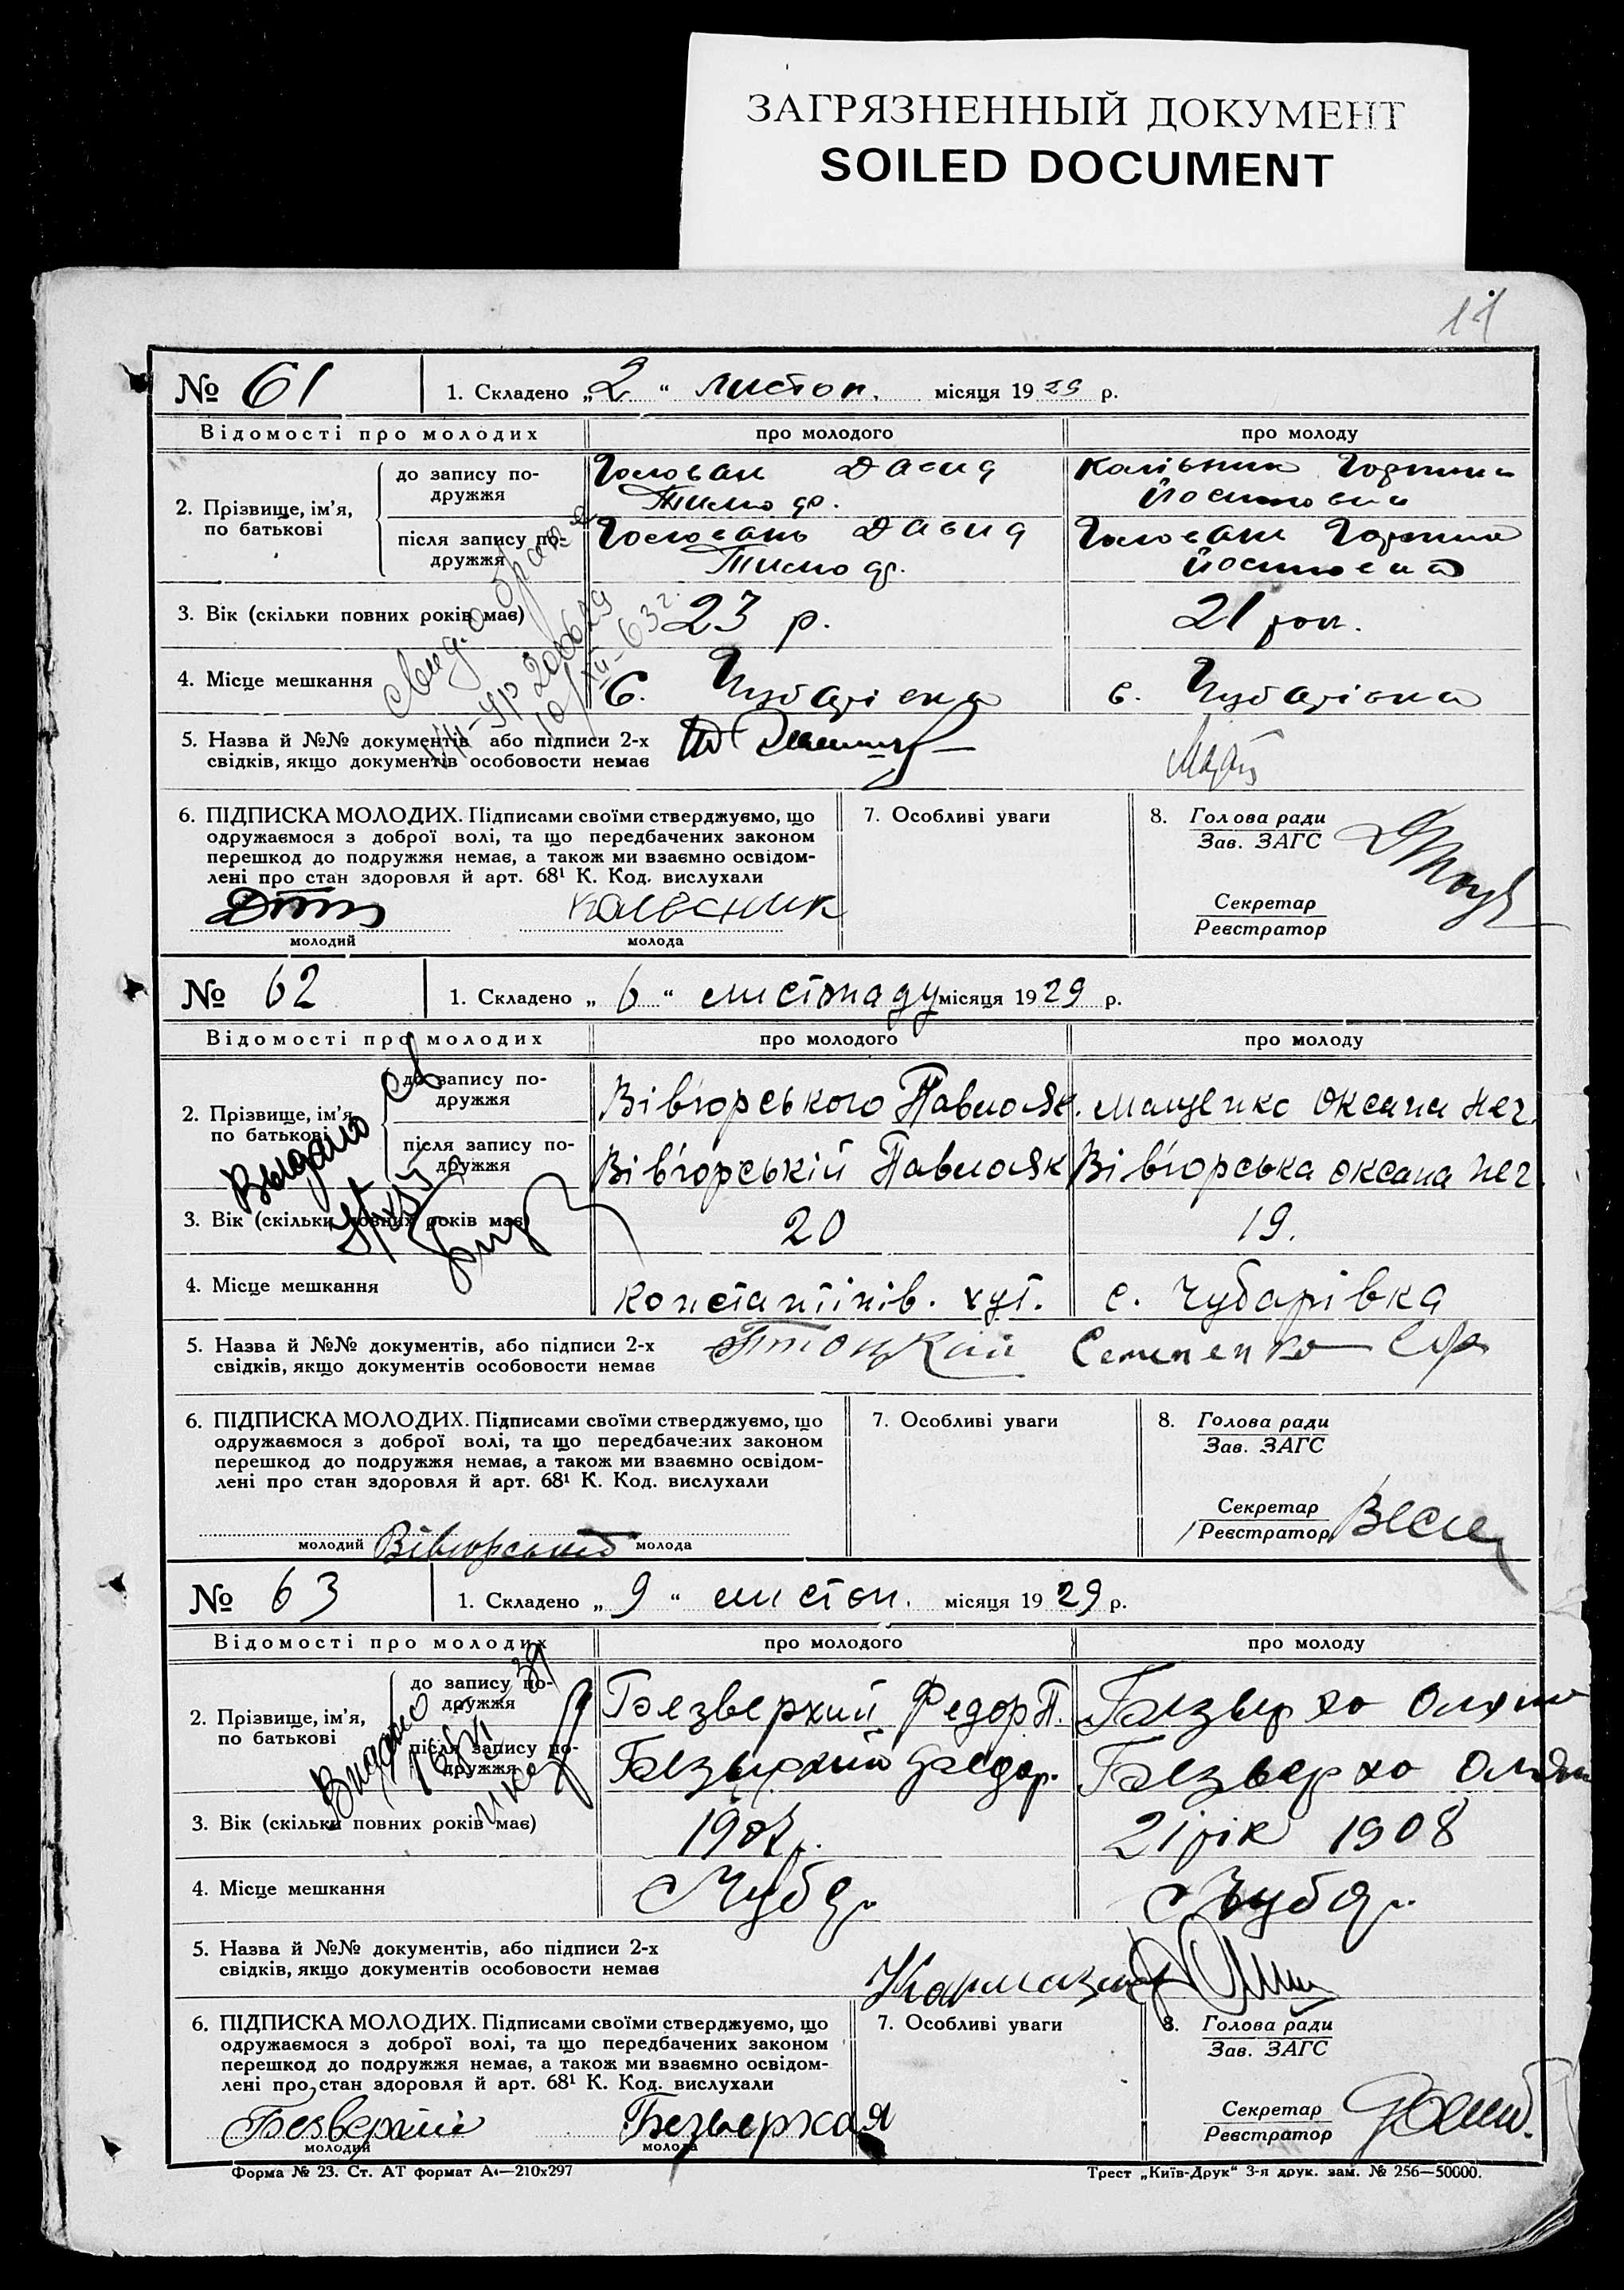 ЗАГРЯЗНЕННЫЙ ДОКУМЕНТ
SOILED DOCUMENT
11
№ 61 1. Складено „2“ листоп. місяця 1929 р.
Відомості про молодих про молодого про молоду
2. Прізвище, ім'я, по батькові
до запису подружжя Голован Давид Тимо Горпина
після запису подружжя Головань Давид Тимо Головань Горпина
3. Вік (скільки повних років має) 23 р. 21 рок.
4. Місце мешкання с. Чубарівка с. Чубарівка
5. Назва й №№ документів або підписи 2-х
свідків, якщо документів особовости немає
6. ПІДПИСКА МОЛОДИХ. Підписами своїми стверджуємо, що
одружаємося з доброї волі, та що передбачених законом
перешкод до подружжя немає, а також ми взаємно освідом-
лені про стан здоровля й арт. 68¹ К. Код. вислухали
7. Особливі уваги
8. Голова ради
Зав. ЗАГС
Секретар
Реєстратор
молодий молода
№ 62 1. Складено „6“ листопаду місяця 1929 р.
Відомості про молодих про молодого про молоду
2. Прізвище, ім'я, по батькові
до запису подружжя Вівгорського Павло Як. Мащенко Оксана Неч.
після запису подружжя Вівгорській Павло Як Вівгорська Оксана Неч.
3. Вік (скільки повних років має) 20 19.
4. Місце мешкання Константінів. хут. с. Чубарівка
5. Назва й №№ документів, або підписи 2-х
свідків, якщо документів особовости немає
Птоцкий Семененко
6. ПІДПИСКА МОЛОДИХ. Підписами своїми стверджуємо, що
одружаємося з доброї волі, та що передбачених законом
перешкод до подружжя немає, а також ми взаємно освідом-
лені про стан здоровля й арт. 68¹ К. Код. вислухали
7. Особливі уваги
8. Голова ради
Зав. ЗАГС
Секретар
Реєстратор
молодий молода
№ 63 1. Складено „9“ листоп. місяця 1929 р.
Відомості про молодих про молодого про молоду
2. Прізвище, ім'я, по батькові
до запису подружжя Безверхий Федор П. Безверхо
після запису подружжя Безверхий Федор. Безверхо
3. Вік (скільки повних років має) 1907р. 21 рік 1908
4. Місце мешкання с Чубар. с Чубар.
5. Назва й №№ документів, або підписи 2-х
свідків, якщо документів особовости немає
6. ПІДПИСКА МОЛОДИХ. Підписами своїми стверджуємо, що
одружаємося з доброї волі, та що передбачених законом
перешкод до подружжя немає, а також ми взаємно освідом-
лені про стан здоровля й арт. 68¹ К. Код. вислухали
7. Особливі уваги
8. Голова ради
Зав. ЗАГС
Секретар
Реєстратор
Безверхий Безверхая
молодий молода
Форма № 23. Ст. АТ формат А4—210x297
Трест „Київ-Друк“ 3-я друк. зам. № 256—50000.